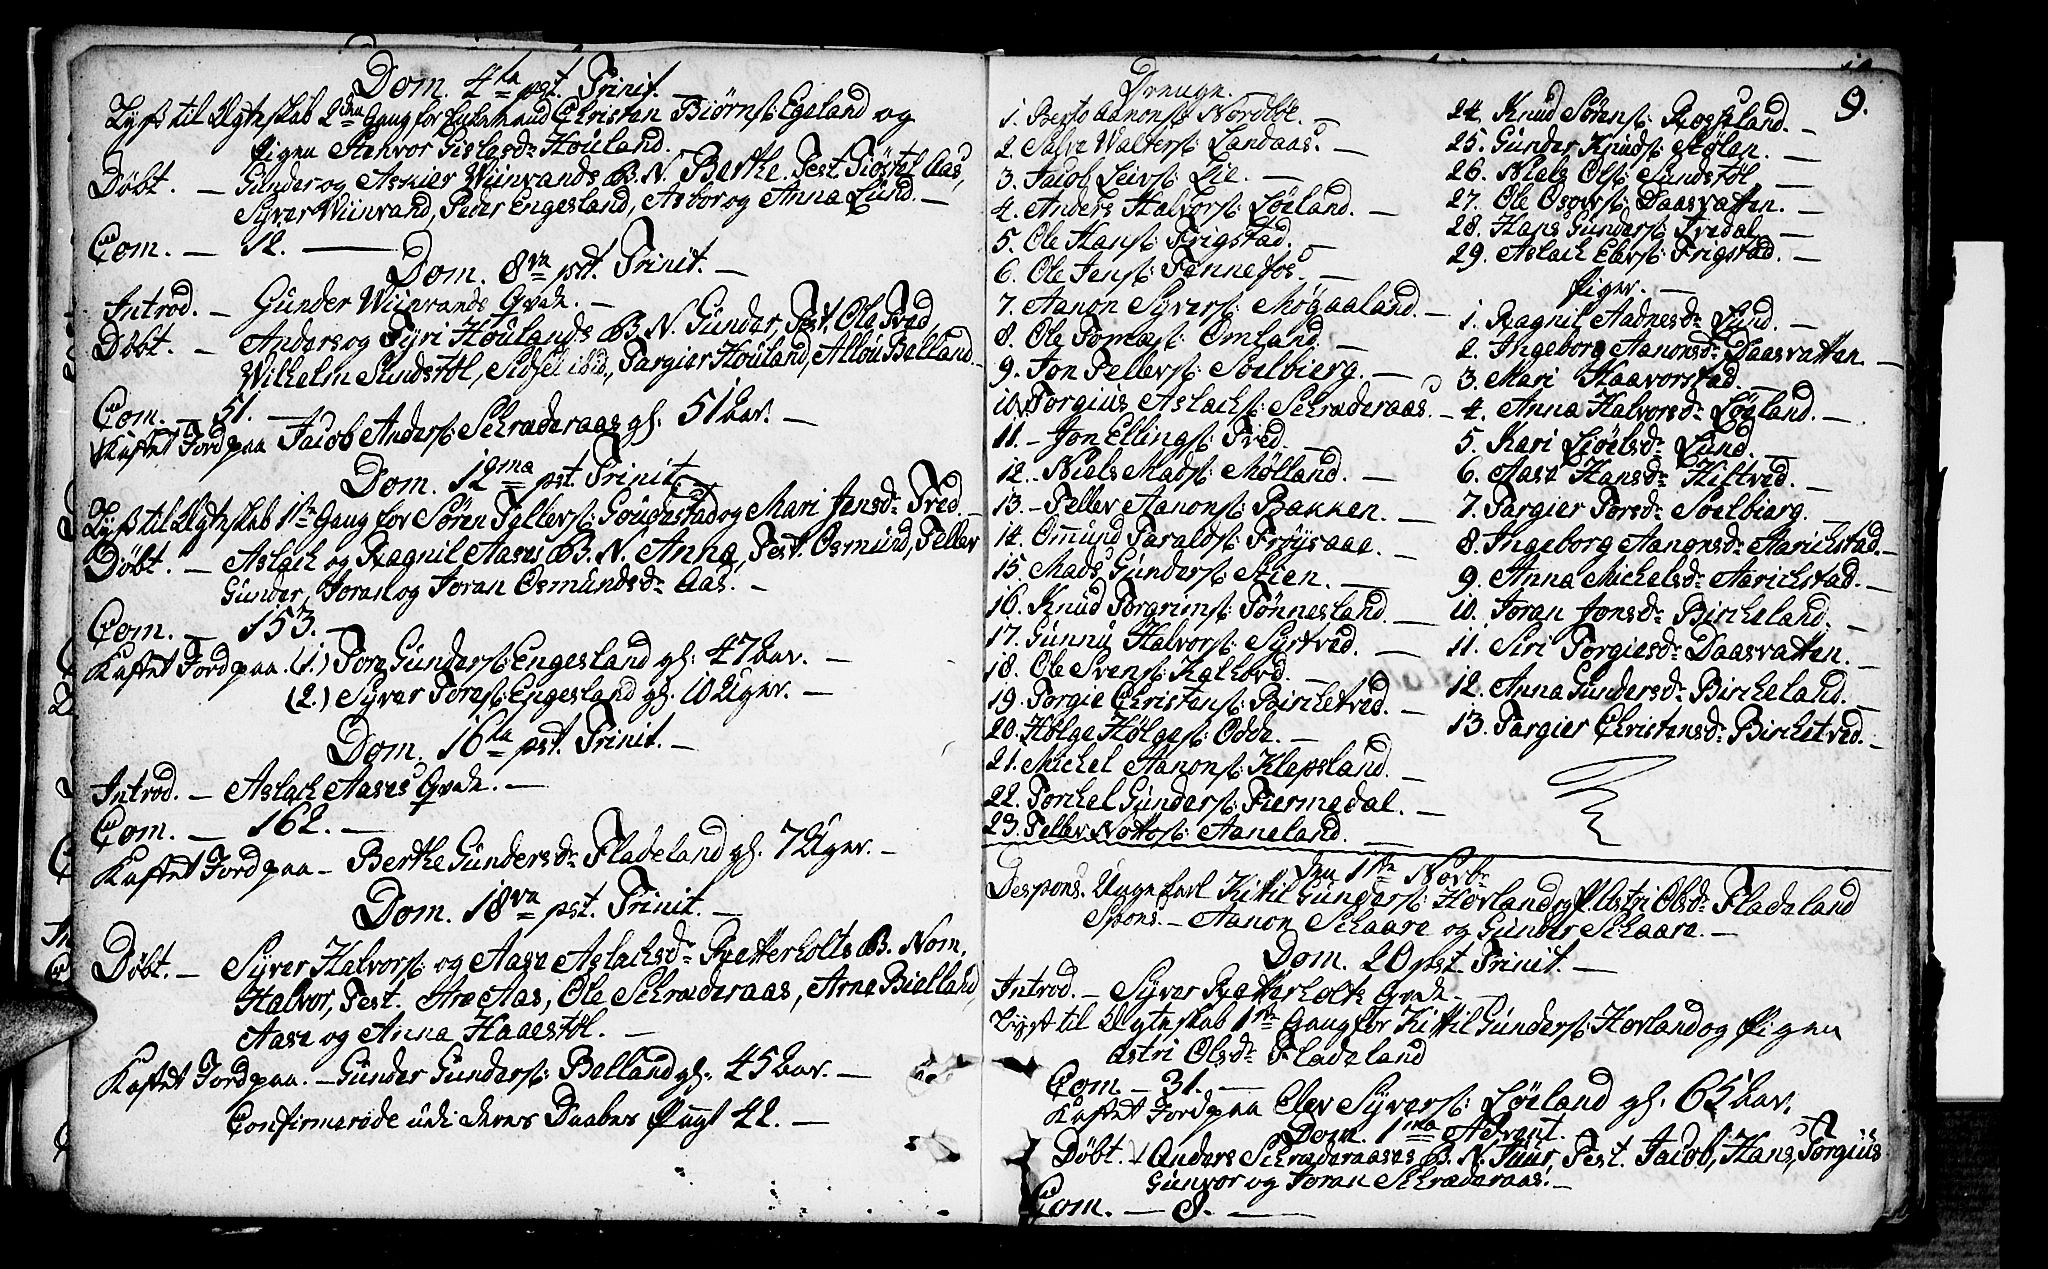 Dom. 4ta pst. Trinit.
Lyst til Ægteskab 2den Gang for Enkemand Christen Biörns: Egeland og
Pigen Stenvor Gislesdr Houland.
Döbt. — Gunder og Askier Wiinrands B. N. Berthe. Test. Siöstel Aas,
Syver Wiinrand, Peder Engesland, Asbor og Anna Lund. —
Com. — 12. —
Dom. 8va pst. Trinit. —
Introd. — Gunder Wiinrands Qvde. —
Döbt. — Anders og Tyri Houlands B. N. Gunder, Test. Ole Tved,
Wilhelm Sundstöl, Sidsel ibid., Targier Houland, Allou Belland.
Com. — 51. —
Kastet Jord paa Jacob Anders: Schræderaas gl. 51 aar. —
Dom. 12ma pst. Trinit. —
Lyst til Ægteskab 1ste Gang for Sören Tellefs: Gougstad og Mari Jensdr Tved. —
Döbt. — Aslach og Ragnil Aases B. N. Anna, Test. Osmund, Tellev
Gunder, Joran og Joran Osmundsdr Aas. —
Com. — 153. —
Kastet Jord paa. (1.) Tore Gunders: Engesland gl. 47 aar. —
(2.) Syver Tores: Engesland gl. 10 Uger. —
Dom. 16ta pst. Trinit. —
Introd. — Aslach Aases Qvde. —
Com. — 162. —
Kastet Jord paa — Berthe Gundersdr Fladeland gl. 7 Uger. —
Dom. 18va pst. Trinit. —
Döbt. — Syver Halvors: og Aase Aslachsdr Retterholts B. Nom.
Halvor, Test. Are Aas, Ole Schræderaas, Arne Bielland,
Aase og Anna Haaestöl. —
Kastet Jord paa. — Gunder Gunders: Belland gl. 45 aar. —
Confirmerede udi deres Daabes Pagt 42. —
9.
Drenge.
1. Bertho Aanons: Nordböe. —
2. Salve Walters: Landaas. —
3. Jacob Leivs: Lie. —
4. Anders Halvors: Löeland. —
5. Ole Hans: Frigstad. —
6. Ole Jens: Fennefos. —
7. Aanon Syvers: Mögaaland. —
8. Ole Tomæs: Omland. —
9. Jon Tellevs: Soelbierg. —
10. Torgius Aslachs: Schræderaas. —
11. — Jon Ellings: Tved. —
12. — Niels Mads: Mölland. —
13. — Tellev Aanons: Bakken. —
14. Omund Taralds: Fröysaae. —
15. Mads Gunders: Stien. —
16. Knud Torgrims: Tönnesland. —
17. Gunnu Halvors: Syrtved. —
18. Ole Svens: Kalhovd. —
19. Torgie Christens: Birchetved. —
20. Hölge Hölges: Odde. —
21. Michel Aanons: Klepsland. —
22. Torchel Gunders: Fiermedal. —
23. Tellev Nottos: Aaneland. —
24. Knud Sörens: Rosseland. —
25. Gunder Knuds: Stölen. —
26. Niels Ols: Sundstöl —
27. Ole Osovs: Daasvatten. —
28. Hans Gunders: Ivedal. —
29. Aslach Elefs: Frigstad. —
Piger. —
1. Ragnil Aadnesdr Lund. —
2. Ingeborg Aanonsdr Daasvatten. —
3. Mari Haavorstad. —
4. Anna Halvorsdr Löeland. —
5. Kari Liöelsdr Lund. —
6. Aase Hansdr Hiltved. —
7. Targier Torsdr Soelbierg. —
8. Ingeborg Aanonsdr Aarichstad. —
9. Anna Michelsdr Aarichstad. —
10. Joran Jonsdr Bircheland. —
11. Siri Torgiesdr Daasvatten. —
12. Anna Gundersdr Bircheland. —
13. Targier Christensdr Birchetved. —
Den 1ste Novbr
Despons. Unge Karl Kittil Gunders: Hovland og P. Astri Olsdr Fladeland
Spons. — Aanon Schaare og Gunder Schaare. —
Dom. 20 pst. Trinit. —
Introd. — Syver Retterholts Qvde. —
Lyst til Ægteskab 1ste Gang for Kittil Gunders: Hovland og Pigen
Astri Olsdr Fladeland
Com. — 31. —
Kastet Jord paa Olev Syvers: Löeland gl. 65 aar.
Dom. 1ma Advent.
Döbt. Anders Schræderaases B. N. Tuur, Test. Jacob, Hans, Torgius
Gunvor og Joran Schræderaas. —
Com. — 8. —